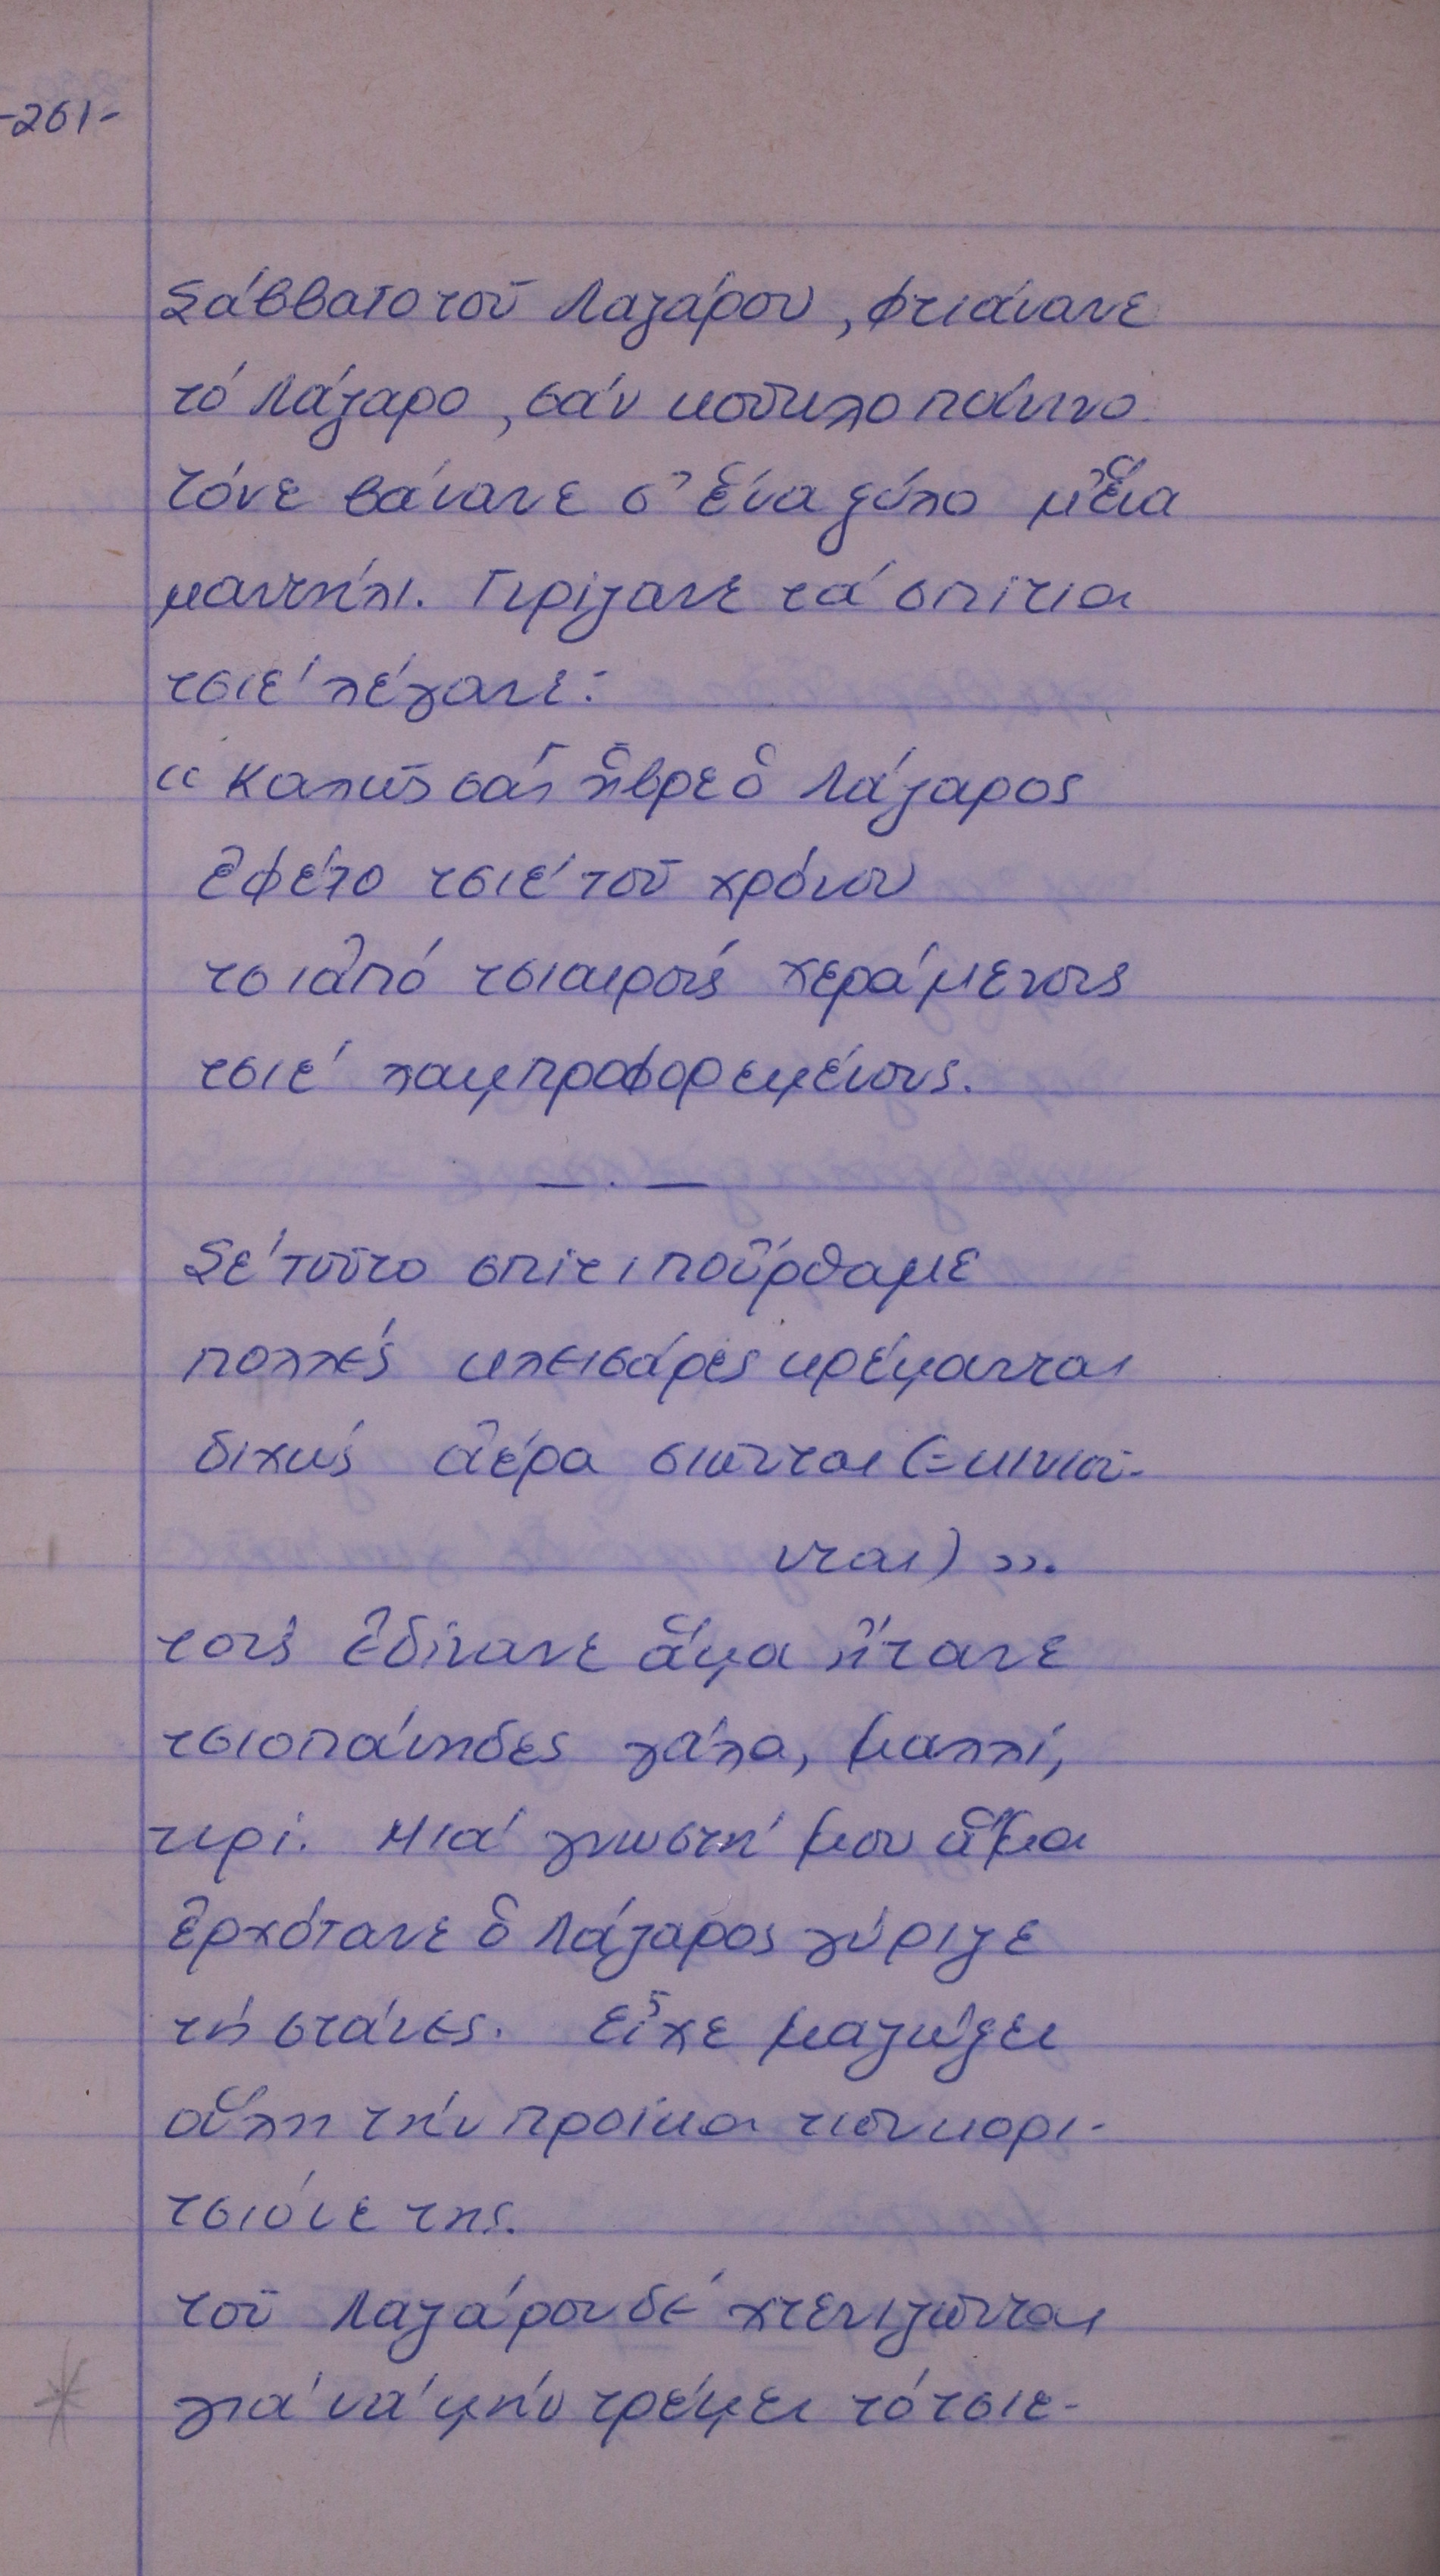 -261-
Σάββατο τοῦ Λαζάρου, φτιάνανε
τό Λάζαρο, σάν κοῦκλο πάνινο
τόνε βάνανε σ' ἕνα ξύλο μ' ἕνα
μαντήλι. Γυρίζανε τά σπίτια
τσιέ λέγανε:
«Καλῶς σᾶς ηὗρε ὁ Λάζαρος
ἐφέτο τσιέ τοῦ χρόνου
τσι ἀπό τσιαιρούς χεράμενους
τσιέ λαμπροφορεμένους.
— . —
Σέ τοῦτο σπίτι ποὔρθαμε
πολλές κλεισάρες κρέμανται
διχώς ἀέρα σιῶνται (=κινιοῦ-
νται)».
τούς ἐδίνανε ἅμα ἤτανε
τσιοπάνηδες γάλα, μαλλί,
τυρί. Μιά γνωστή μου ἅμα
ἐρχότανε ὁ Λάζαρος γύριζε
τή στάνες. Εἶχε μαζώξει
οὕλη τήν προίκα τωνκορι-
τσιώνε της.
τοῦ Λαζάρου δέ χτενιζῶνται
γιά νά μήν τρέμει τό τσιε-